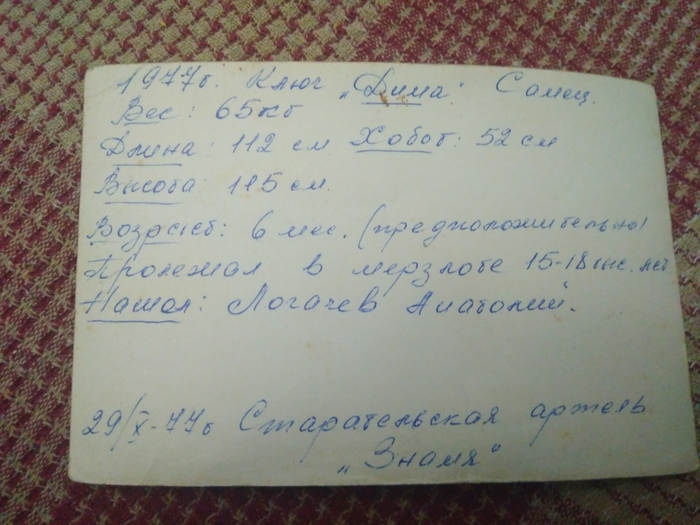 1977г. Ключ „Дима" Самец.
Вес: 65 кг
Длина: 112 см Хобот: 52 см
Высота: 115 см.
Возраст: 6 мес. (предположительно)
Пролежал в мерзлоте 15-18 тыс. лет
Нашол: Логачев Анатолий.
29/X-77г Старательская артель
„Знамя"